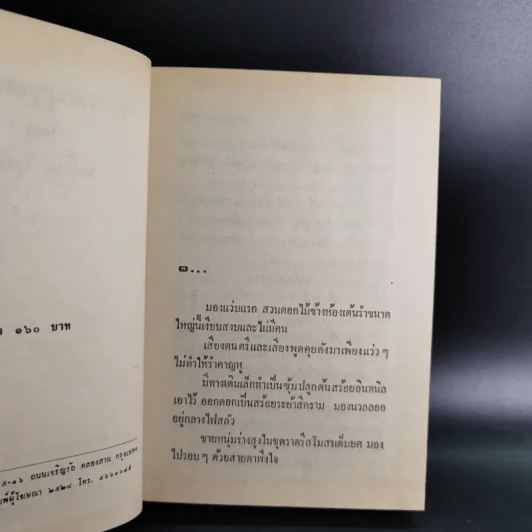 ๑๖๐ บาท
๕-๑๖ ถนนเจริญรัถ คลองสาน กรุงเทพฯ
ผู้โฆษณา ๒๕๒๘ โทร. ๔๖๖๐๐๘๕
๑...
มองแว่บแรก สวนดอกไม้ข้างห้องเต้นรำขนาด
ใหญ่นี้เงียบสงบและไม่มีคน
เสียงดนตรีและเสียงพูดคุยดังมาเพียงแว่ว ๆ
ไม่ทำให้รำคาญหู
มีทางเดินเล็กทำเป็นซุ้มปลูกต้นสร้อยอินทนิล
เอาไว้ ออกดอกเป็นสร้อยระย้าสีคราม มองนวลลออ
อยู่กลางไฟสลัว
ชายหนุ่มร่างสูงในชุดราตรีสโมสรเต็มยศ มอง
ไปรอบ ๆ ด้วยสายตาพึงใจ